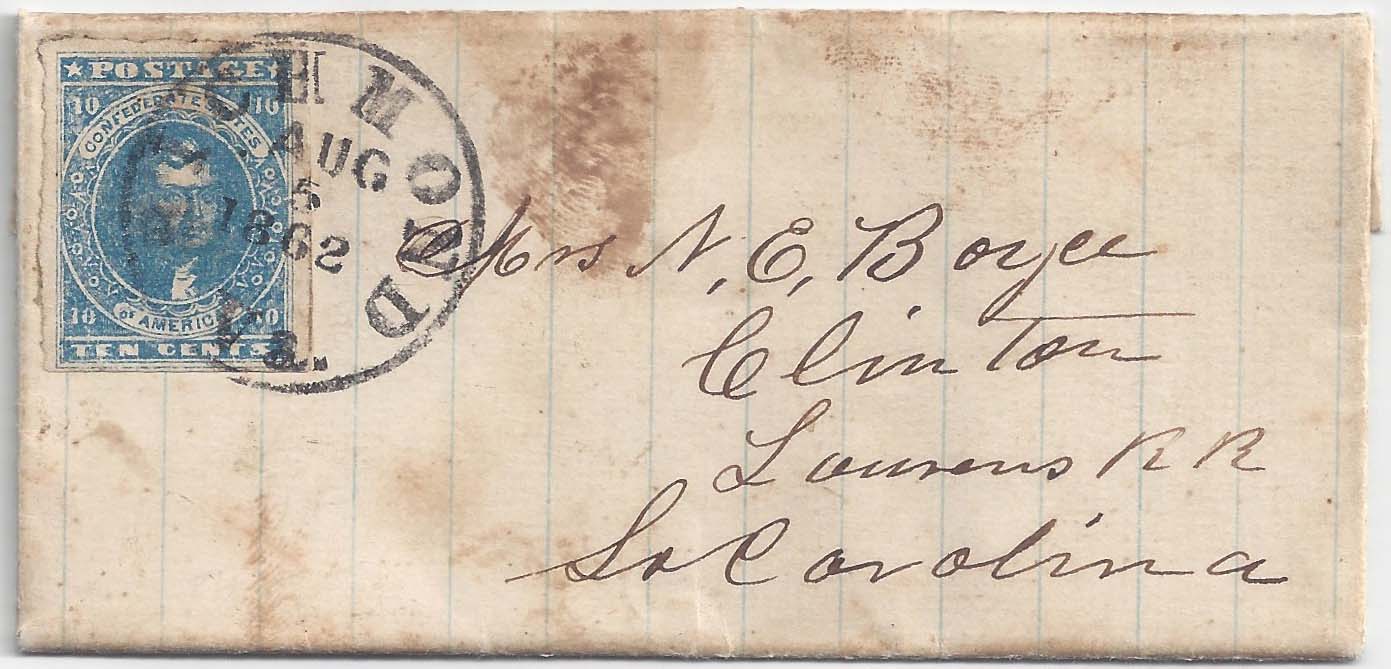 ★ POSTAGE ★
10 10
CONFEDERATE STATES
OF AMERICA
10 10
TEN CENTS
RICHMOND
AUG
5
1862
Va.
Mrs N, E, Boyce
Clinton
Laurens R R
So Carolina